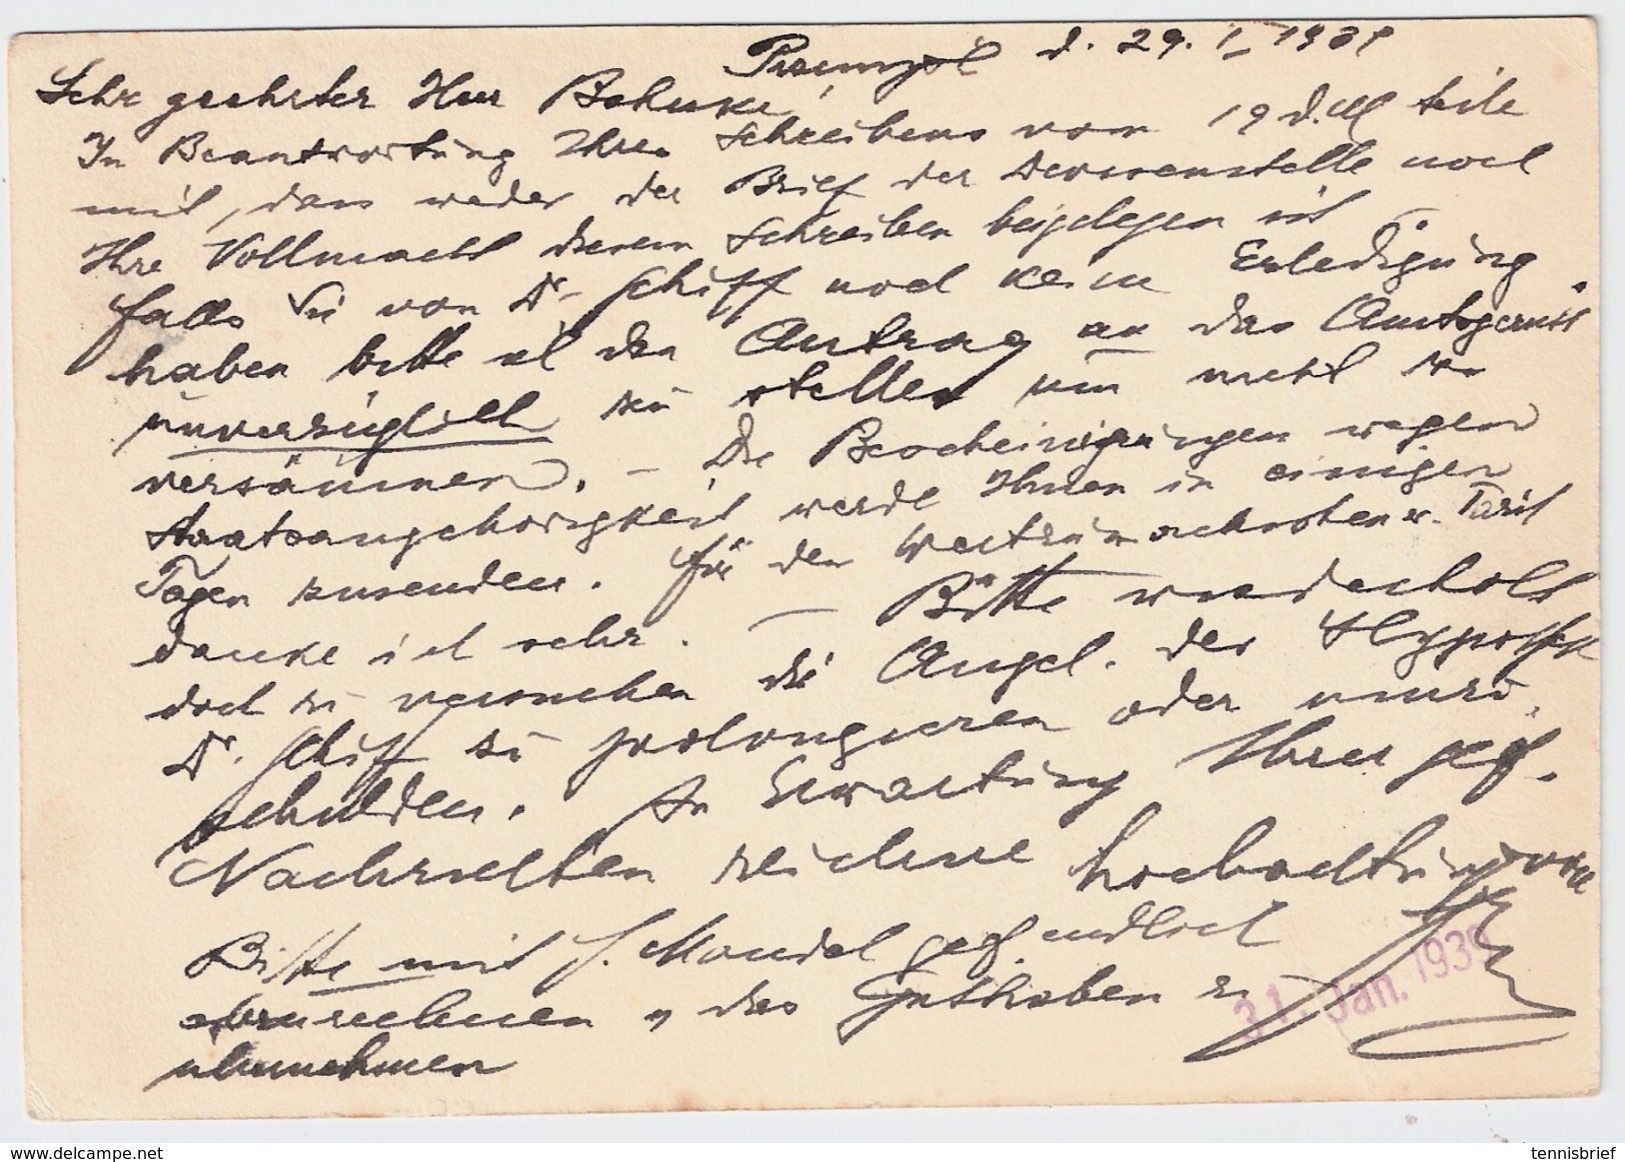 Przemysl d. 29. I 1939
Sehr geehrter Herr Bohnke!
In Beantwortung Ihres Schreibens vom 19 d. M teile
mit, dass weder der Brief der Devisenstelle noch
Ihre Vollmacht diesem Schreiben beigelegen ist
falls Sie von Dr Schiff noch keine Erledigung
haben bitte ich den Antrag an das Amtsgericht
unverzüglich zu stellen um nicht zu
versäumen. – Die Bescheinigungen wegen
Staatsangehörigkeit werde Ihnen in einigen
Tagen zusenden. Für den
danke ich sehr. – Bitte wiederholt
doch zu versuchen die Angel. der Hypothek
Dr. Schiff zu prolongieren oder
schulden. In Erwartung Ihrer gef.
Nachrichten zeichne hochachtungsvoll
Bitte mit J. Mandel gef. endlich
abzurechnen u das Guthaben zu
übernehmen
31. Jan. 1939
tennisbrief